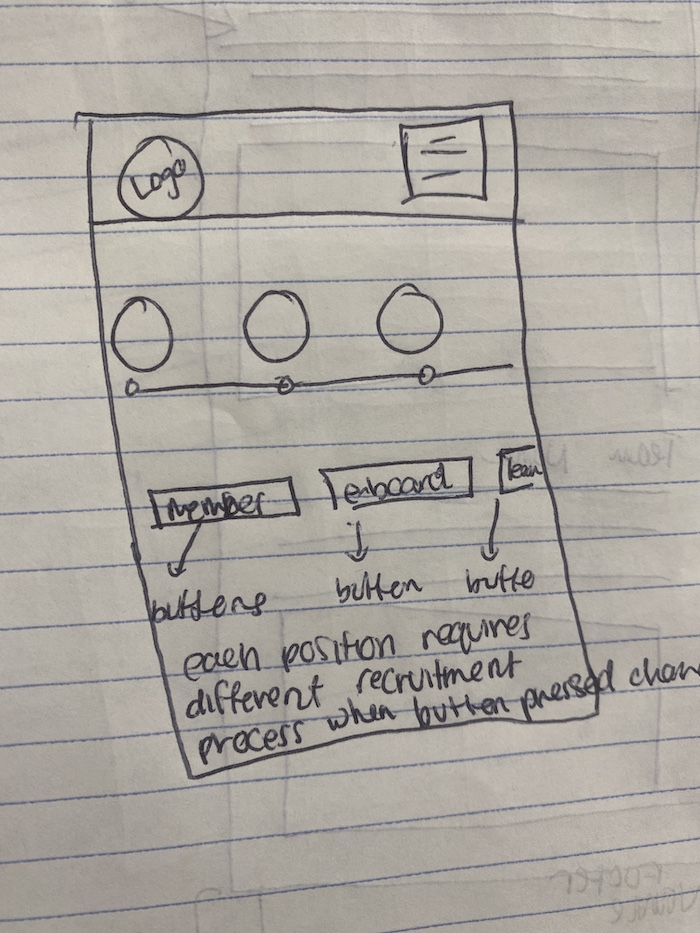 Logo
member
enboard
team
buttons
button
butto
each position requires
different recruitment
process when button pressed chan
Team
FOOTER